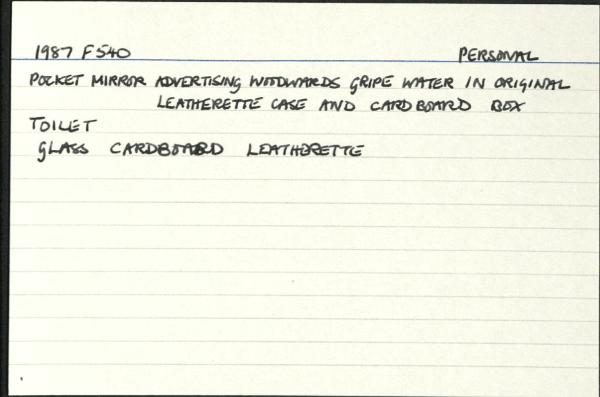 1987 F540 PERSONAL
POCKET MIRROR ADVERTISING WOODWARDS GRIPE WATER IN ORIGINAL
LEATHERETTE CASE AND CARDBOARD BOX
TOILET
GLASS CARDBOARD LEATHERETTE